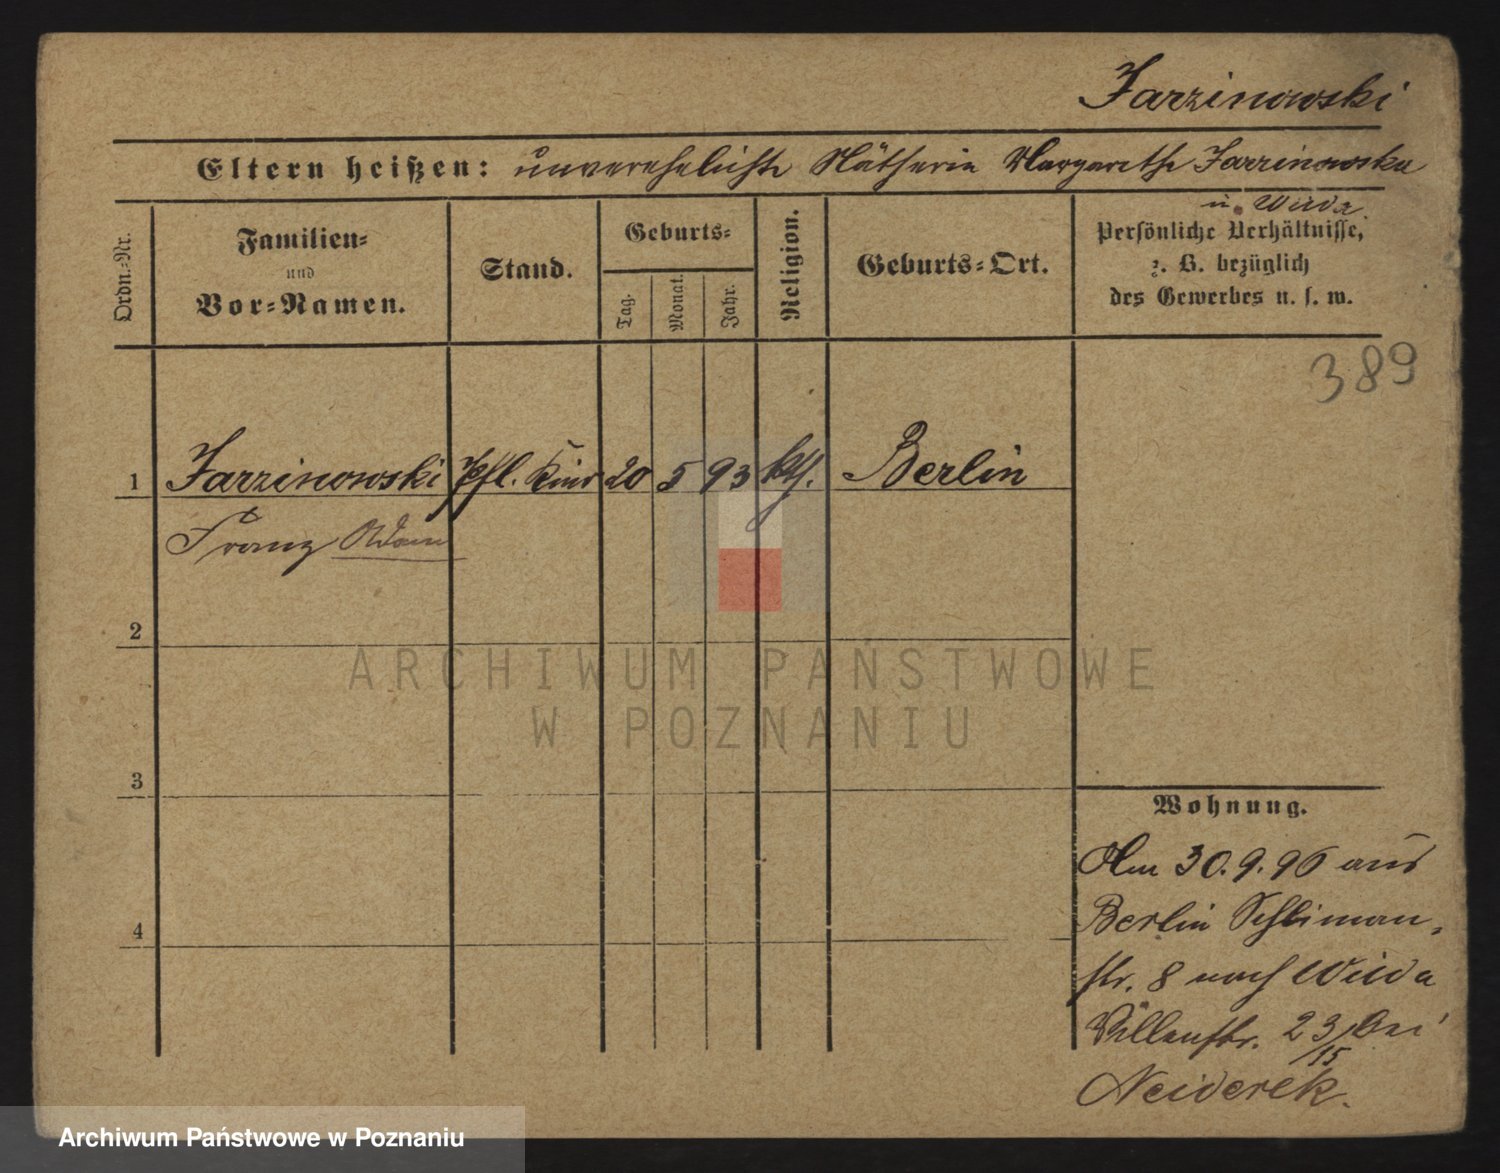 Jarzinowski
Eltern heißen: unverehelichte Nätherin Margarethe Jarzinowska
u. Wilda
Ordn.-Nr.
Familien-
und
Vor-Namen.
Stand.
Geburts-
Tag.
Monat.
Jahr.
Religion.
Geburts-Ort.
Persönliche Verhältnisse,
z. B. bezüglich
des Gewerbes u. s. w.
389
1 Jarzinowski Pfl. Kind 20 5 93 kth. Berlin
Franz Adam
2
3
4
Wohnung.
Am 30.9.96 aus
Berlin Schliman-
str. 8 nach Wilda
Villenstr. 23/15 bei
Neiderek.
ARCHIWUM PAŃSTWOWE
W POZNANIU
Archiwum Państwowe w Poznaniu